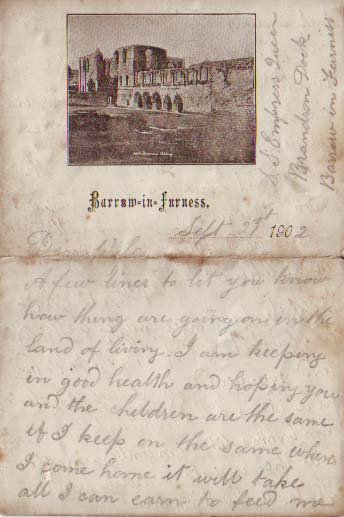 S S Empress Queen
Barrow-in-Furness
Furness Abbey
Barrow=in=Furness,
Sept 2st 1902
A few lines to let you know
how thing are going on in the
land of living. I am keeping
in good health and hoping you
and the children are the same
if I keep on the same when
I come home it will take
all I can earn to feed me